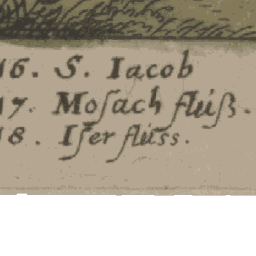 16. S. Iacob
17. Moſach flúß.
18. Iſer flúss.